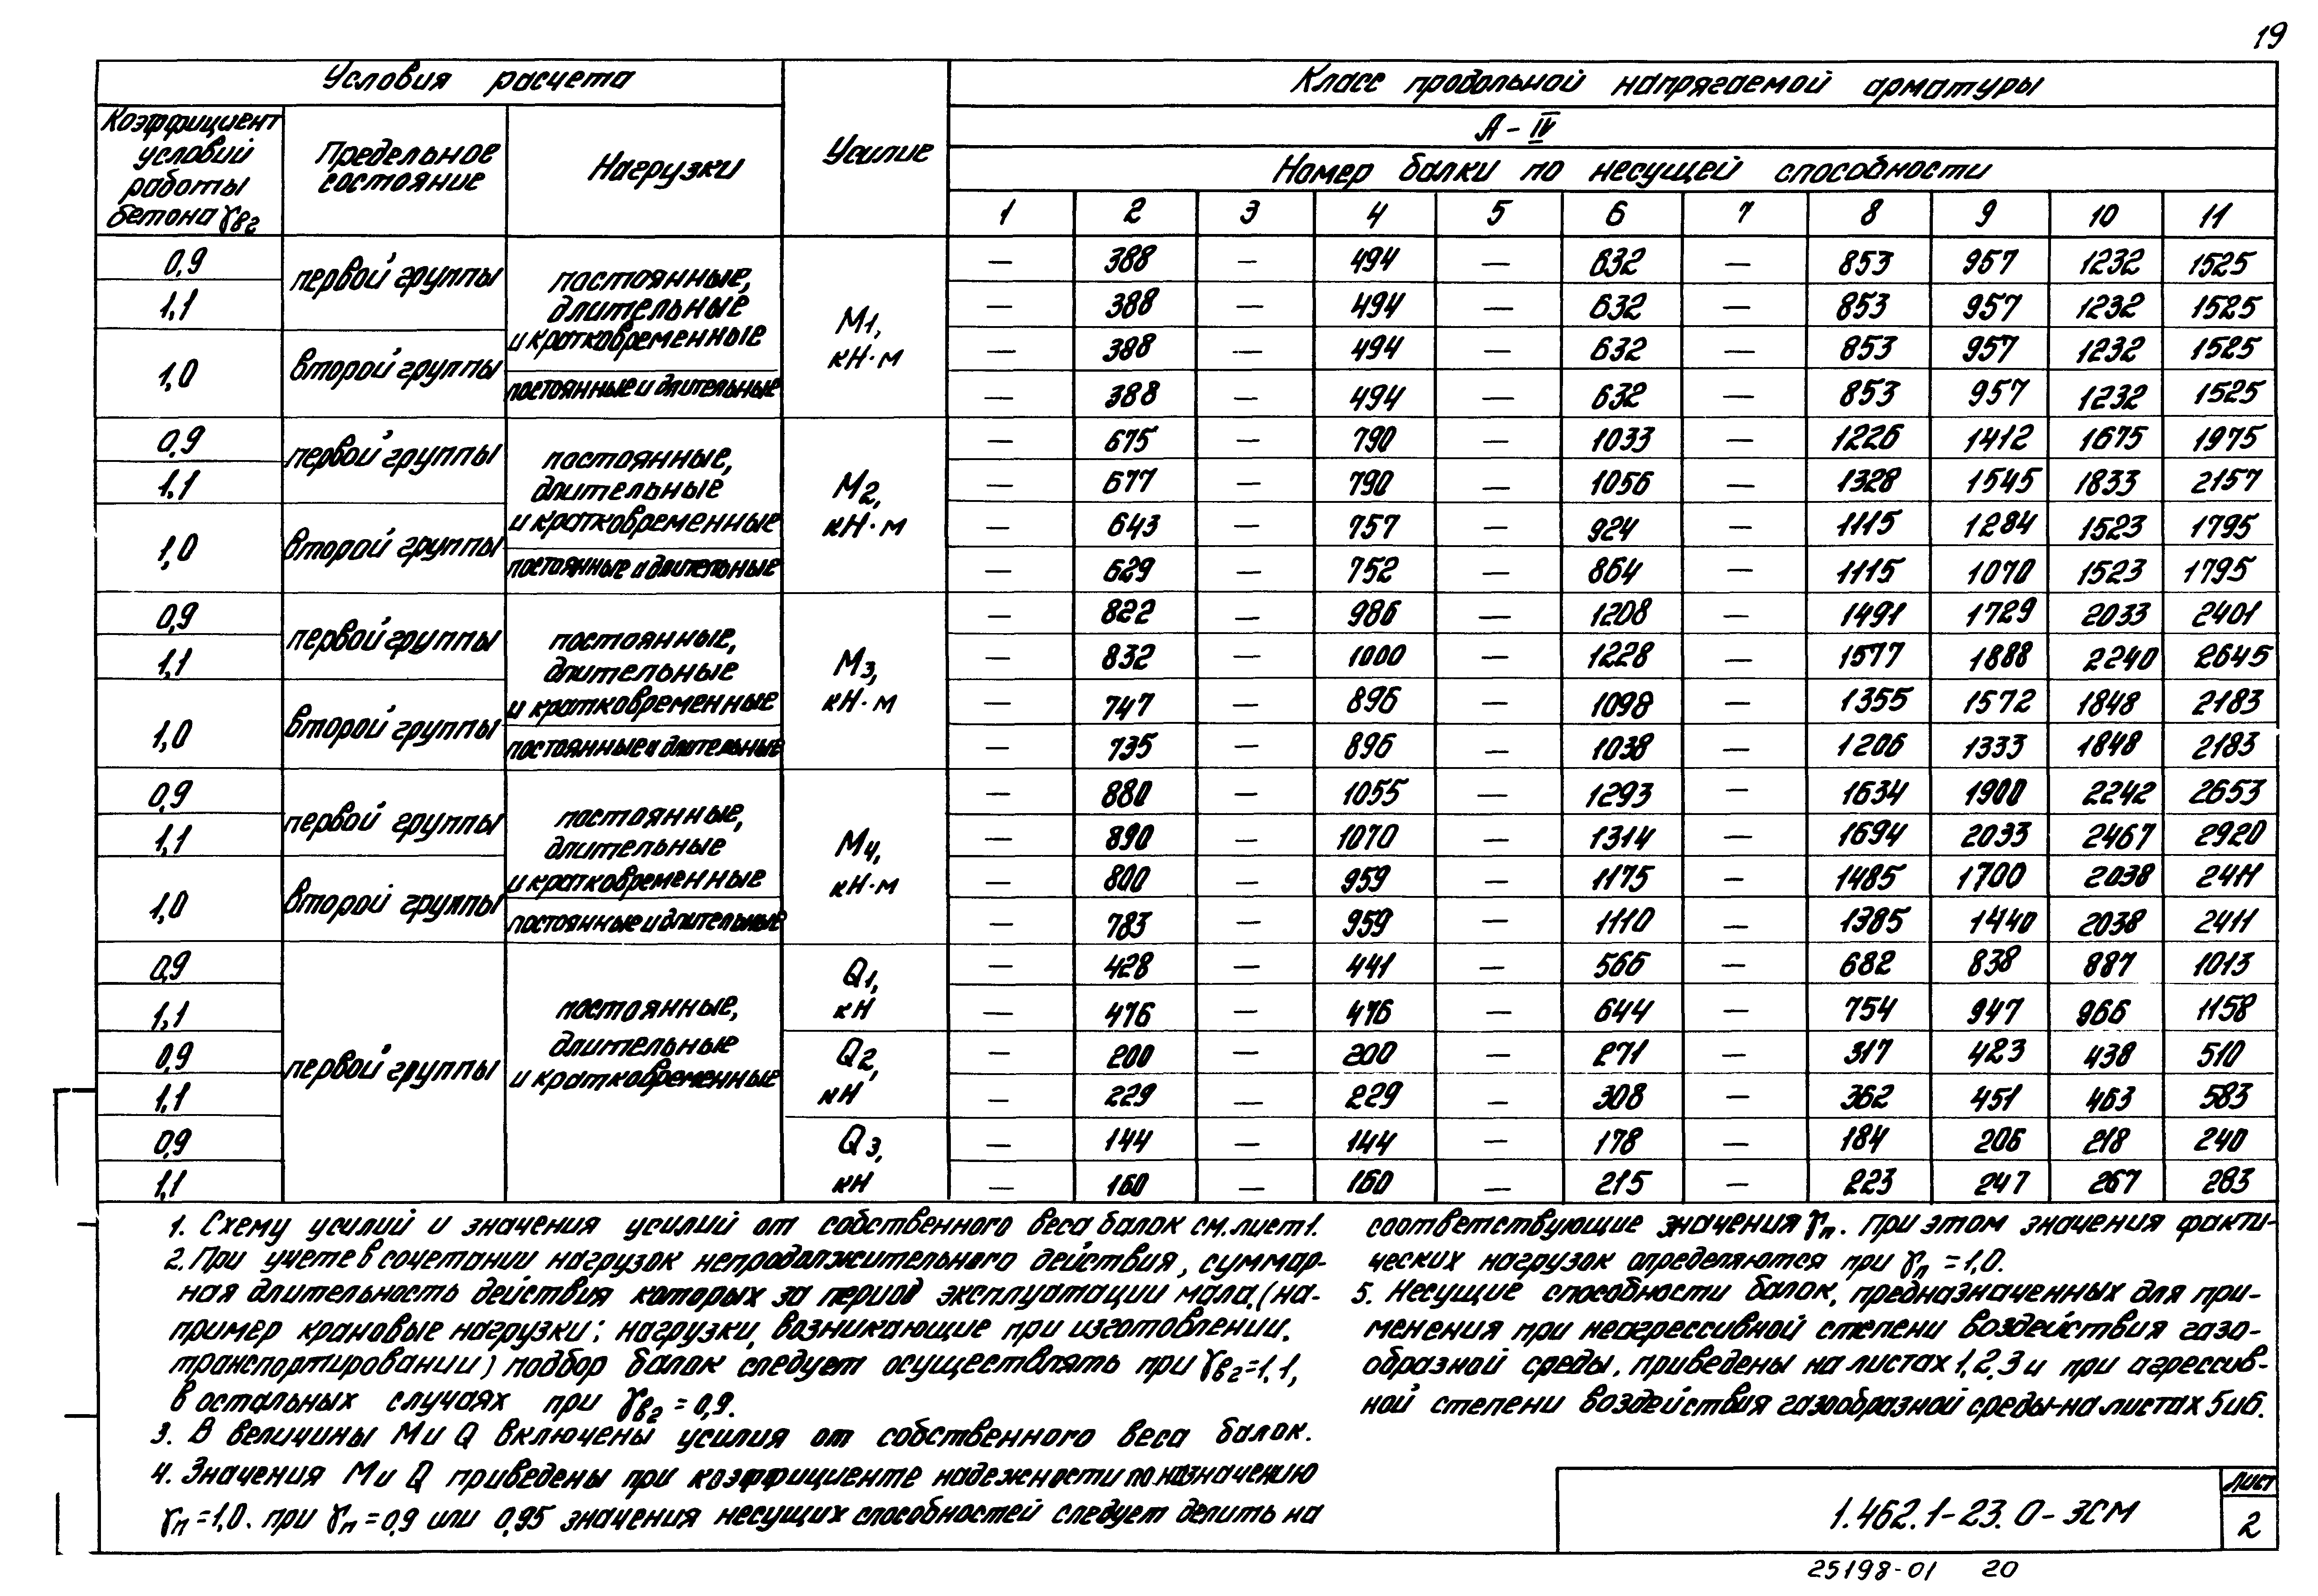 19
Условия расчета
Усилие
Класс продольной напрягаемой арматуры
Коэффициент условий работы бетона γв2
Предельное состояние
Нагрузки
А-IV
Номер балки по несущей способности
1 2 3 4 5 6 7 8 9 10 11
0,9 первой группы постоянные, длительные и кратковременные М1, кН·м — 388 — 494 — 632 — 853 957 1232 1525
1.1 — 388 — 494 — 632 — 853 957 1232 1525
1,0 второй группы — 388 — 494 — 632 — 853 957 1232 1525
постоянные и длительные — 388 — 494 — 632 — 853 957 1232 1525
0,9 первой группы постоянные, длительные и кратковременные М2, кН·м — 675 — 790 — 1033 — 1226 1412 1675 1975
1.1 — 677 — 790 — 1056 — 1328 1545 1833 2157
1,0 второй группы — 643 — 757 — 924 — 1115 1284 1523 1795
постоянные и длительные — 629 — 752 — 864 — 1115 1070 1523 1795
0,9 первой группы постоянные, длительные и кратковременные М3, кН·м — 822 — 986 — 1208 — 1491 1729 2033 2401
1.1 — 832 — 1000 — 1228 — 1577 1888 2240 2645
1,0 второй группы — 747 — 896 — 1098 — 1355 1572 1848 2183
постоянные и длительные — 735 — 896 — 1038 — 1206 1333 1848 2183
0,9 первой группы постоянные, длительные и кратковременные М4, кН·м — 880 — 1055 — 1293 — 1634 1900 2242 2653
1.1 — 890 — 1070 — 1314 — 1694 2033 2467 2920
1,0 второй группы — 800 — 959 — 1175 — 1485 1700 2038 2411
постоянные и длительные — 783 — 959 — 1110 — 1385 1440 2038 2411
0,9 первой группы постоянные, длительные и кратковременные Q1, кН — 428 — 441 — 566 — 682 838 887 1013
1.1 — 476 — 476 — 644 — 754 947 966 1158
0,9 Q2, кН — 200 — 200 — 271 — 317 423 438 510
1.1 — 229 — 229 — 308 — 362 451 463 583
0,9 Q3, кН — 144 — 144 — 178 — 184 206 218 240
1.1 — 160 — 160 — 215 — 223 247 267 283
1. Схему усилий и значения усилий от собственного веса балок см. лист 1.
2. При учете в сочетании нагрузок непродолжительного действия, суммар-
ная длительность действия которых за период эксплуатации мала, (на-
пример крановые нагрузки; нагрузки, возникающие при изготовлении,
транспортировании) подбор балок следует осуществлять при γв2=1.1,
в остальных случаях при γв2=0,9.
3. В величины М и Q включены усилия от собственного веса балок.
4. Значения М и Q приведены при коэффициенте надежности по назначению
γп=1,0. при γп=0,9 или 0,95 значения несущих способностей следует делить на
соответствующие значения γп. При этом значения факти-
ческих нагрузок определяются при γп =1,0.
5. Несущие способности балок, предназначенных для при-
менения при неагрессивной степени воздействия газо-
образной среды, приведены на листах 1,2,3 и при агрессив-
ной степени воздействия газообразной среды-на листах 5 и 6.
1.462.1-23.0-3СМ
Лист
2
25198-01 20